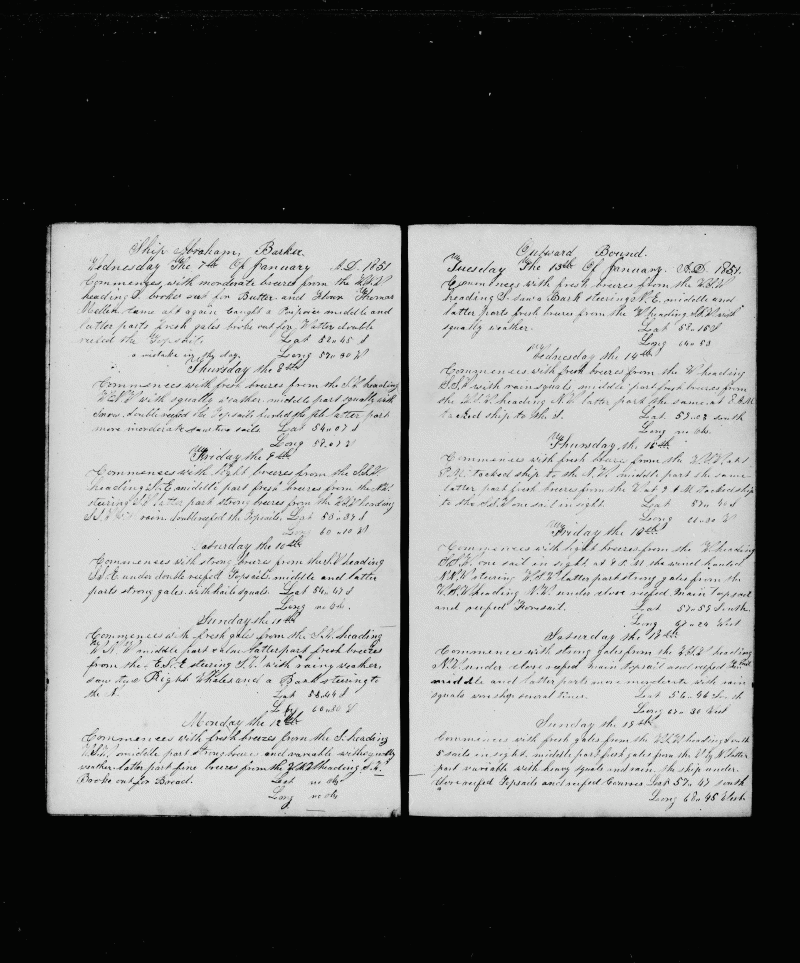 Ship Abraham Barker
Wednesday The 7th Of January A.D. 1851
Commences with moderate breezes from the W.S.W
heading S. broke out for Butter and Flour Thomas
came aft again Caught a Porpoise middle and
latter parts fresh gales broke out for Watter double
reefed the Topsails. Lat 52 " 45 S
a mistake in the day. Long 57 " 30 W
Thursday the 8th
Commences with fresh breezes from the heading
with squally weather middle part squally with
Snow. double reefed the Topsails furled the jib latter part
more moderate saw two sails Lat 54 " 07 S
Long 58 " 07 W
Friday the 9th
Commences with light breezes from the
heading S.E. middle part fresh breezes from the
steering latter part strong breezes from the heading
rain. double reefed the Topsails. Lat 53 " 37 S
Long 60 " 10 W
Saturday the 10th
Commences with strong breezes from the S.W heading
under double reefed Topsails middle and latter
parts strong gales with hail squals Lat 54 " 47 S
Long no Obs.
Sunday the 11th
Commences with fresh gales from the S.W. heading
W N W middle part calm latter part fresh breezes
from the steering with rainy weather
saw two Right Whales and a Bark steering to
the S. Lat 53 " 44 S
Long 60 " 50 W
Monday the 12th
Commences with fresh breezes from the S. heading
middle part strong breezes and variable with squally
weather latter part fine breezes from the heading
Broke out for Bread. Lat no obs
Long no obs
Outward Bound.
Tuesday The 13th Of January. A.D. 1851.
Commences with fresh breezes from the W.S.W
heading S. saw a Bark steering N.E. middle and
latter parts fresh breezes from the W heading S.S.W with
squally weather. Lat 58 " 15 S
Long 64 " 53
Wednesday the 14th
Commences with fresh breezes from the W heading
S.S.W with rain squals middle part fresh breezes from
the heading N.W. latter part the same at 8 A.M
tacked ship to the S. Lat 57 " 08 south
Long no Obs.
Thursday the 15th
Commences with fresh breezes from the at
P.M. tacked ship to the N.W. middle part the same
latter part fresh breezes from the W at A M tacked ship
to the S.S.W one sail in sight. Lat 57 " 40 S
Long 66 " 30 W
Friday the
Commences with light breezes from the W heading
S.S.W. one sail in sight at P.M the wind hauled
N.N.W steering latter part strong gales from the
heading N.W. under close reefed main Topsail
and reefed Foresail. Lat 57 " 57 South
Long 67 " 24 West
Saturday the
Commences with strong gales from the W.S.W heading
N.W. under close reefed main topsail and reefed
middle and latter parts more moderate with rain
squals wore ship several times. Lat 56 " 46 South
Long 67 " 30 West
Sunday the
Commences with fresh gales from the heading South
5 sails in sight. middle part fresh gales from the W by N latter
part variable with heavy squals and rain. the ship under.
Close reefed Topsails and reefed Courses Lat 57 " 47 south
Long 68 " 45 West